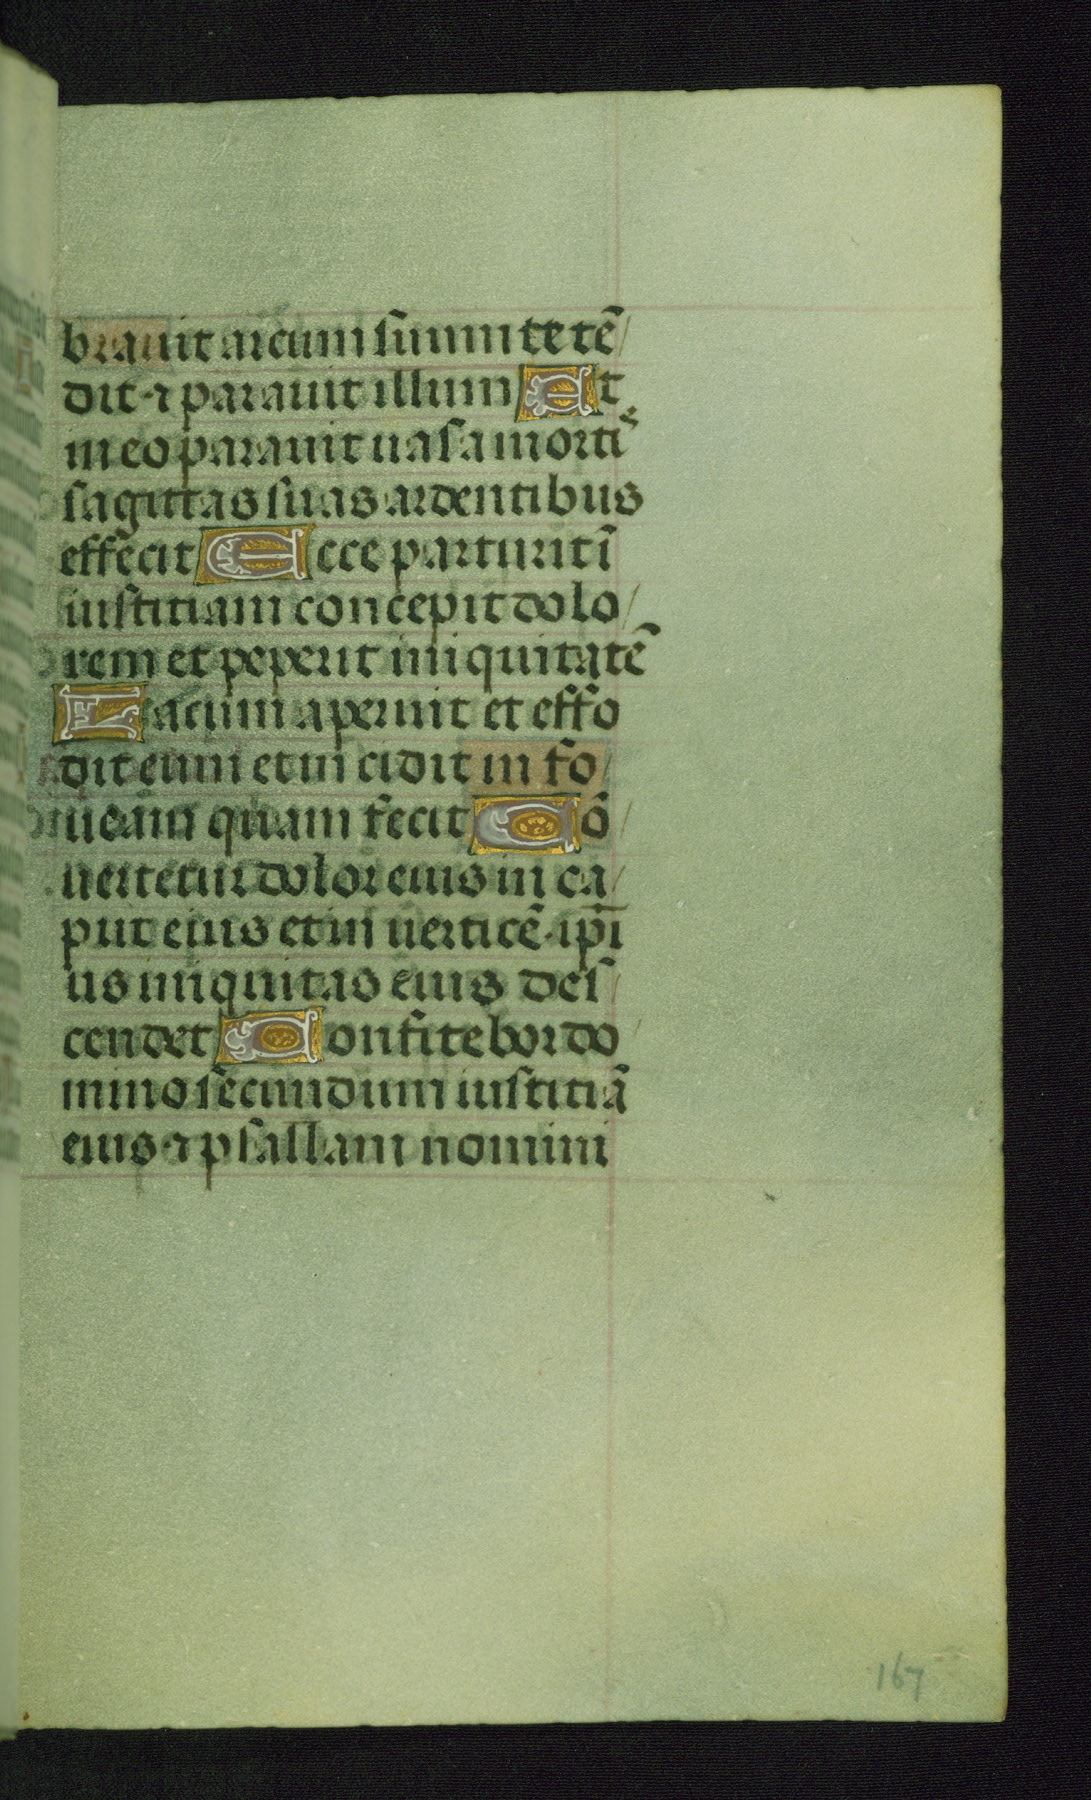 brauit arcum suum tetẽ/
dit ⁊ parauit illum Et
in eo parauit uasa mortiˢ
sagittas suas ardentibus
effecit Ecce parturit ĩ
iustitiam concepit dolo/
rem et peperit iniquitatẽ
Lacum aperuit et effo
dit eum et incidit in fo/
ueam quam fecit Cõ/
uertetur dolor eius in ca/
put eius et in uerticẽ ip̃i
us iniquitas eius des/
cendet Confitebor do/
mino secundum iustitiã
eius ⁊ psallam nomini
167